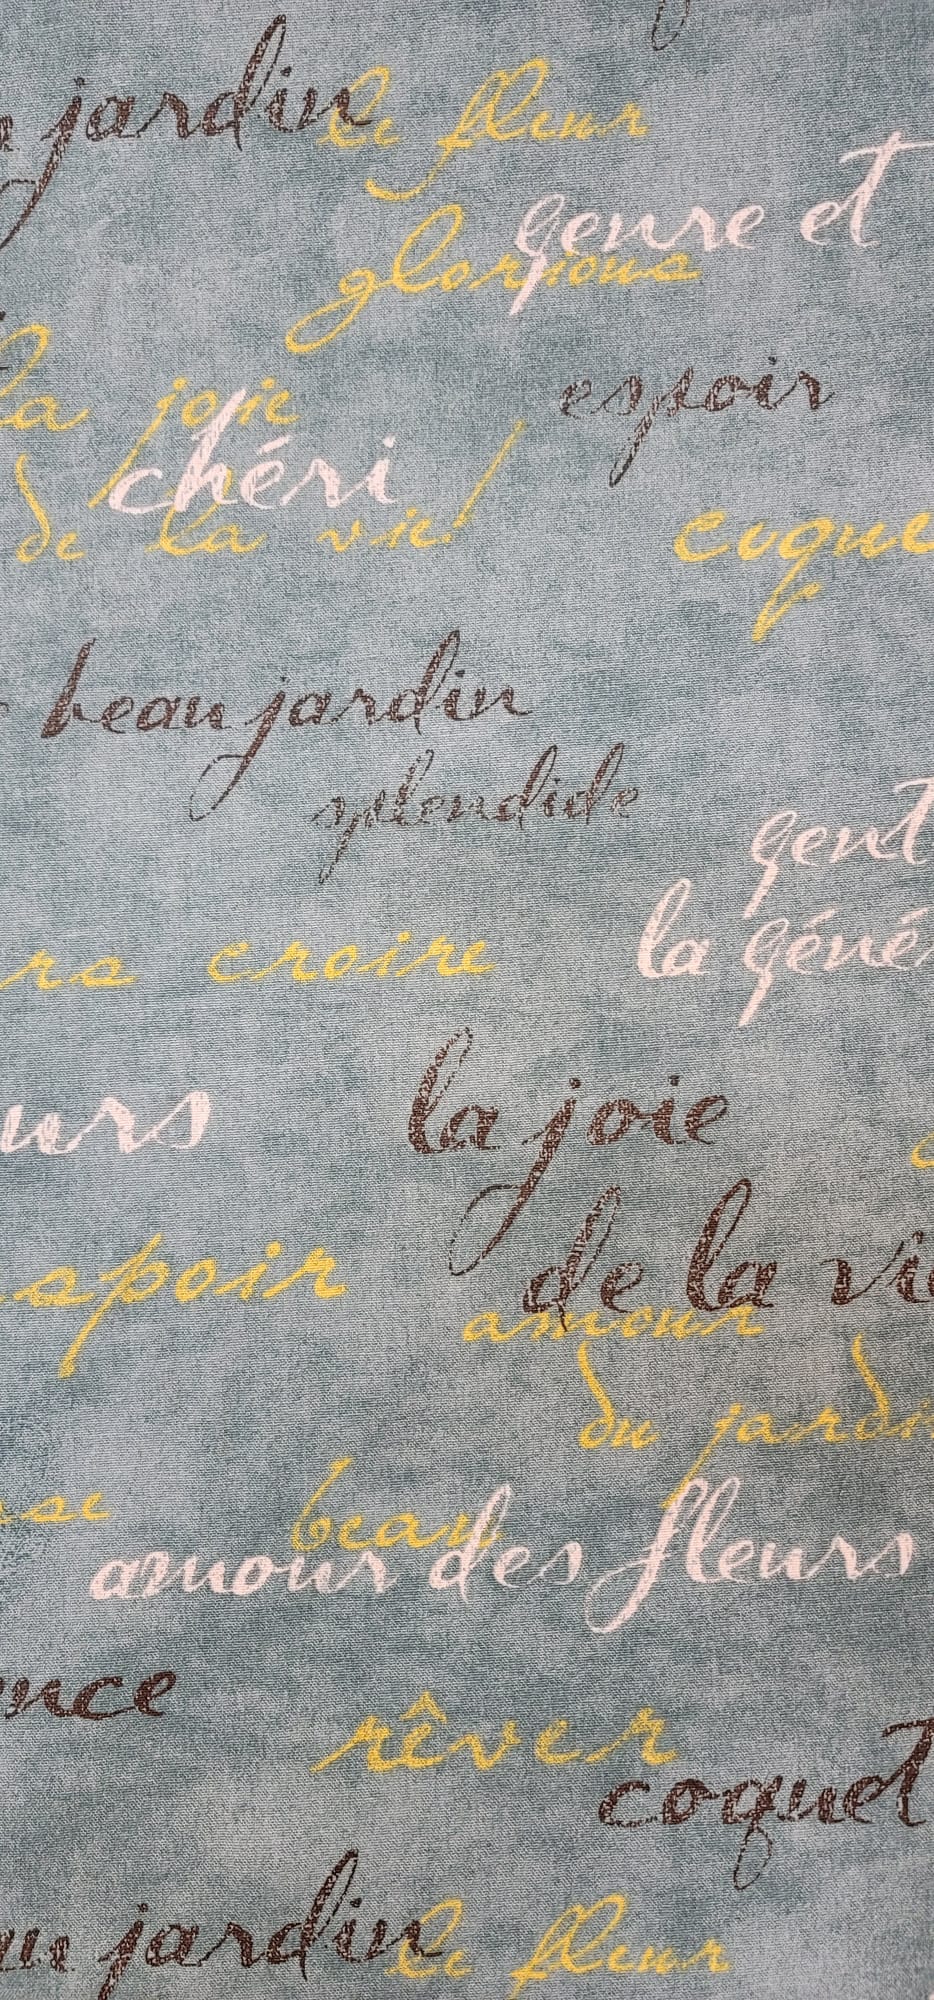 jardin
le fleur
genre et
glorious
espoir
la joie
chéri
de la vie!
coque
beau jardin
splendide
gent
la géné
rs croire
urs
la joie
spoir
de la vi
amour
du jardi
se
beau
amour des fleurs
nce
rêver
coquet
u jardin
le fleur